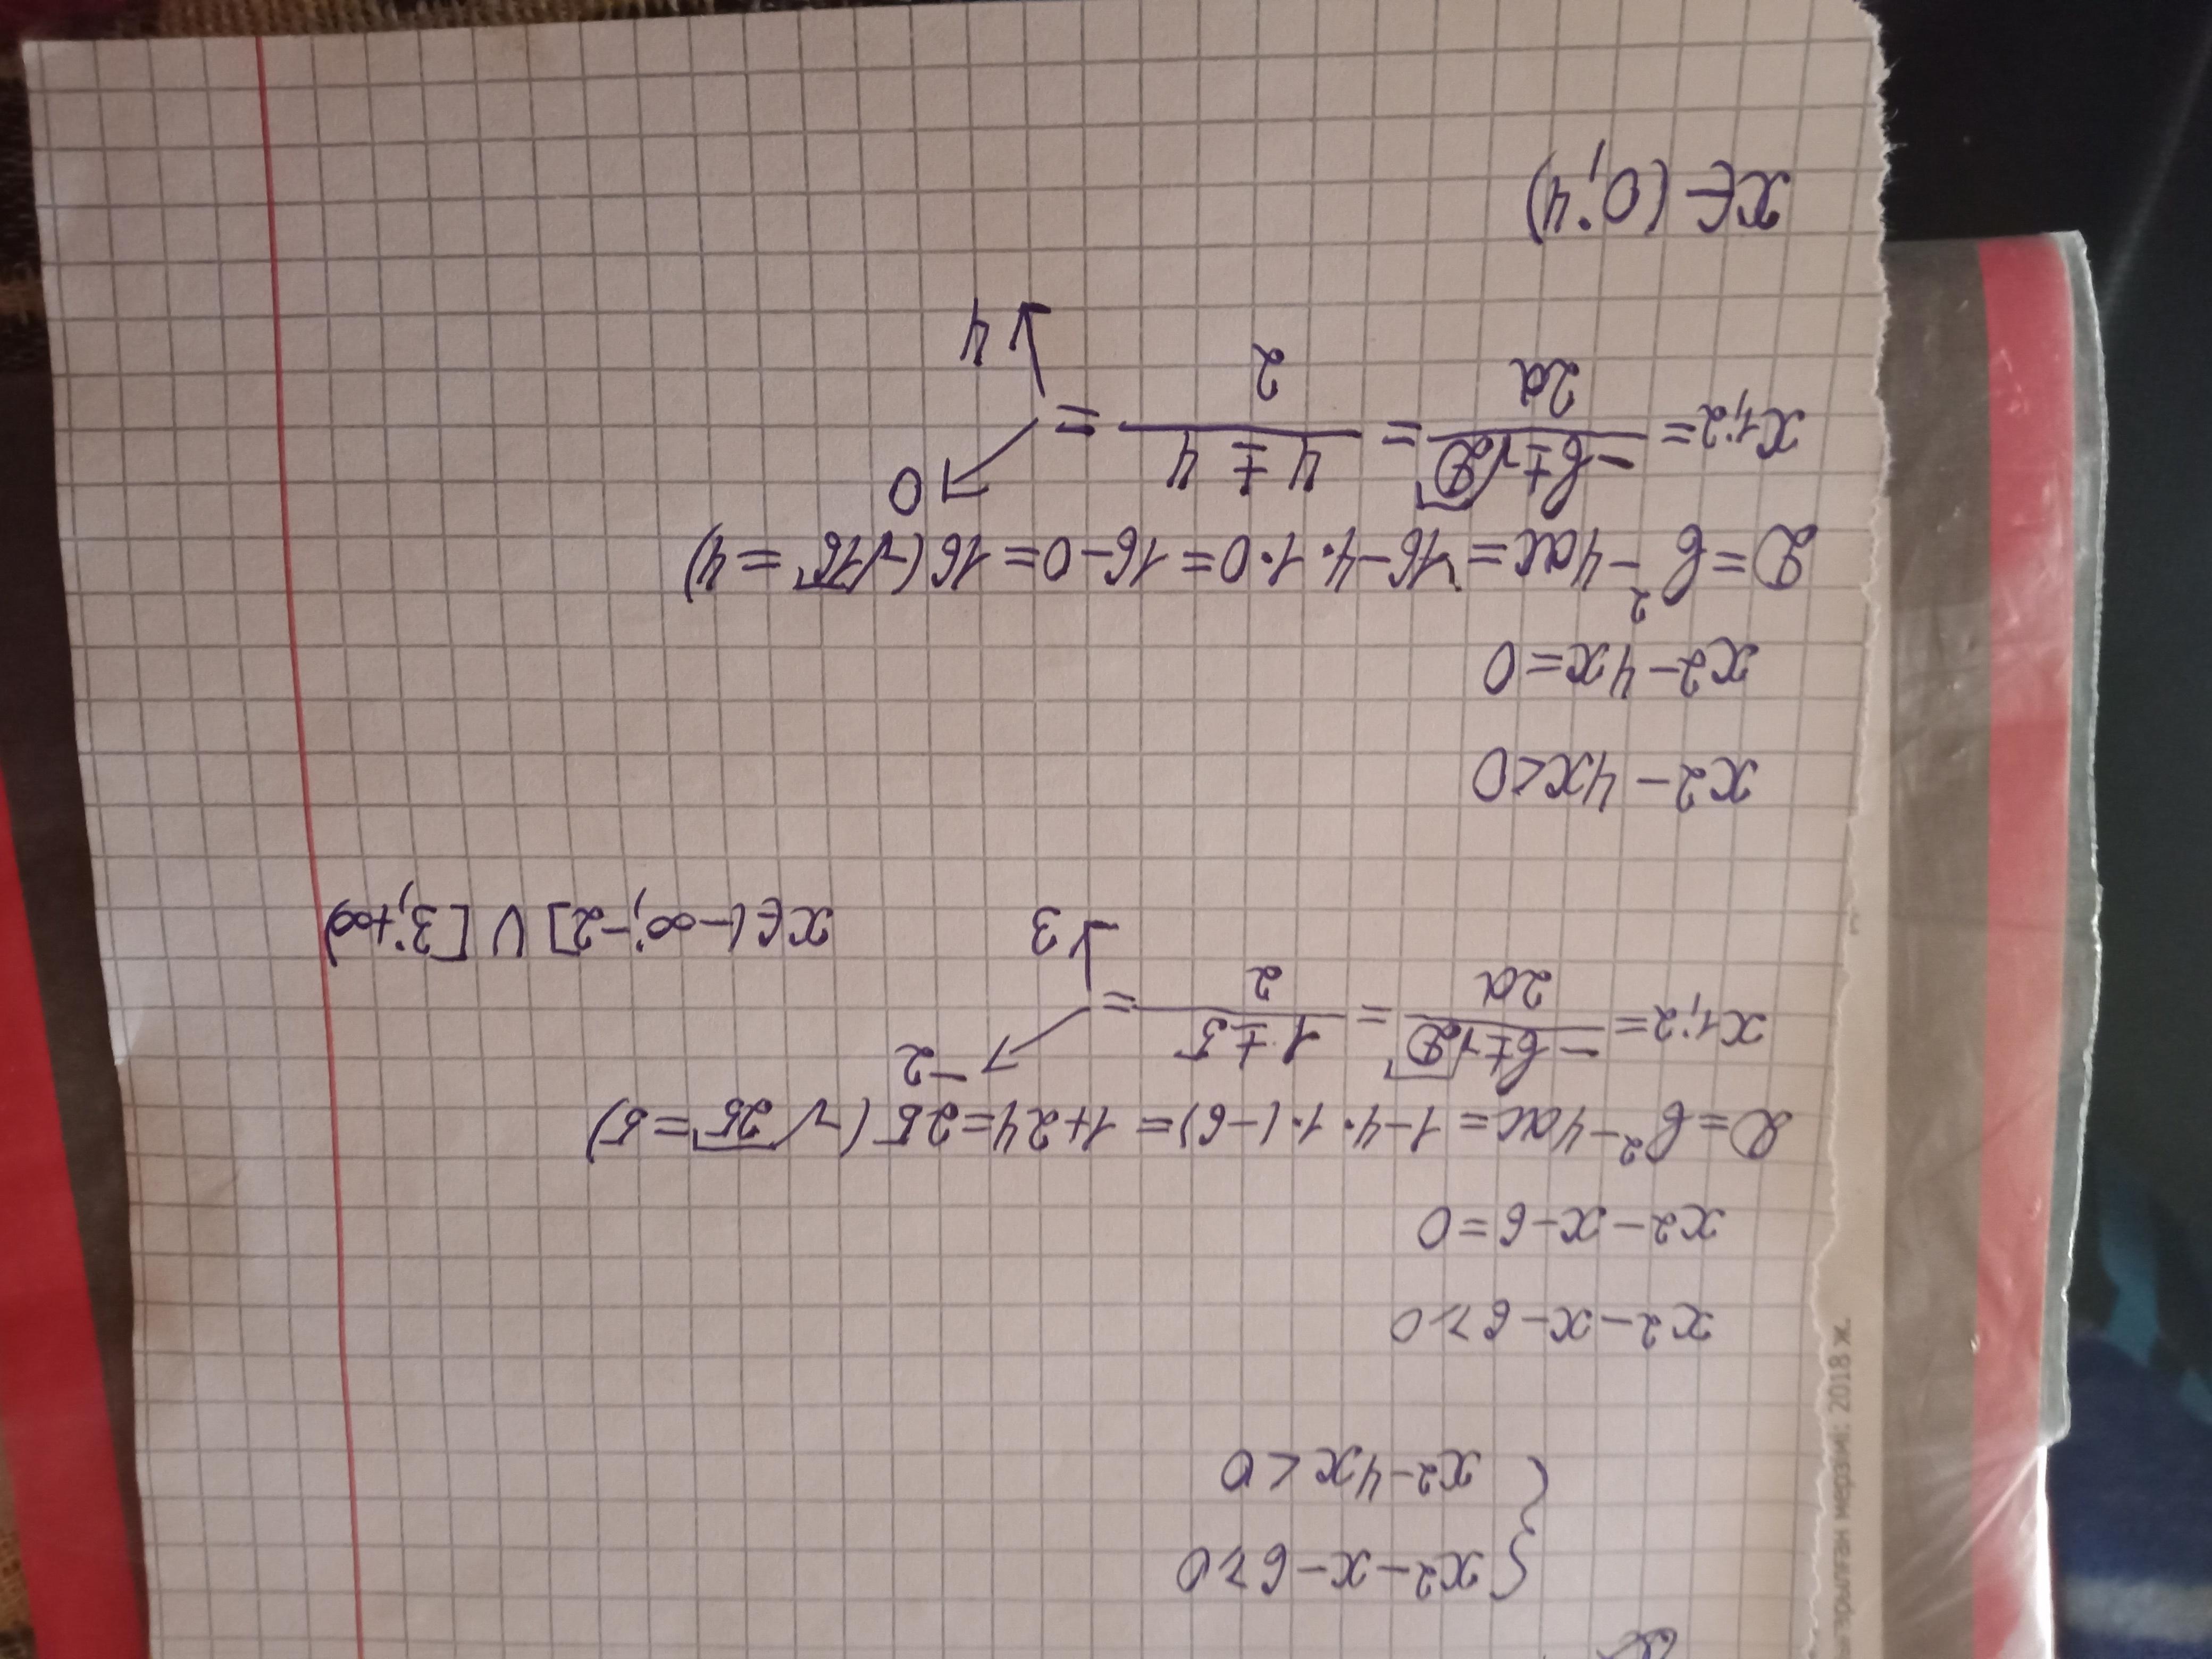 { x2-x-6≥0
x2-4x<0
x2-x-6≥0
x2-x-6=0
D=b²-4ac=1-4·1·(-6)=1+24=25 (√25=5)
x1;2= -b±√D / 2a = 1±5 / 2 = -2
3
x∈(-∞;-2] ∪ [3;+∞)
x2-4x<0
x2-4x=0
D=b²-4ac=16-4·1·0=16-0=16 (√16=4)
x1;2= -b±√D / 2a = 4±4 / 2 = 0
4
x∈(0;4)
мерзімі: 2018 ж.